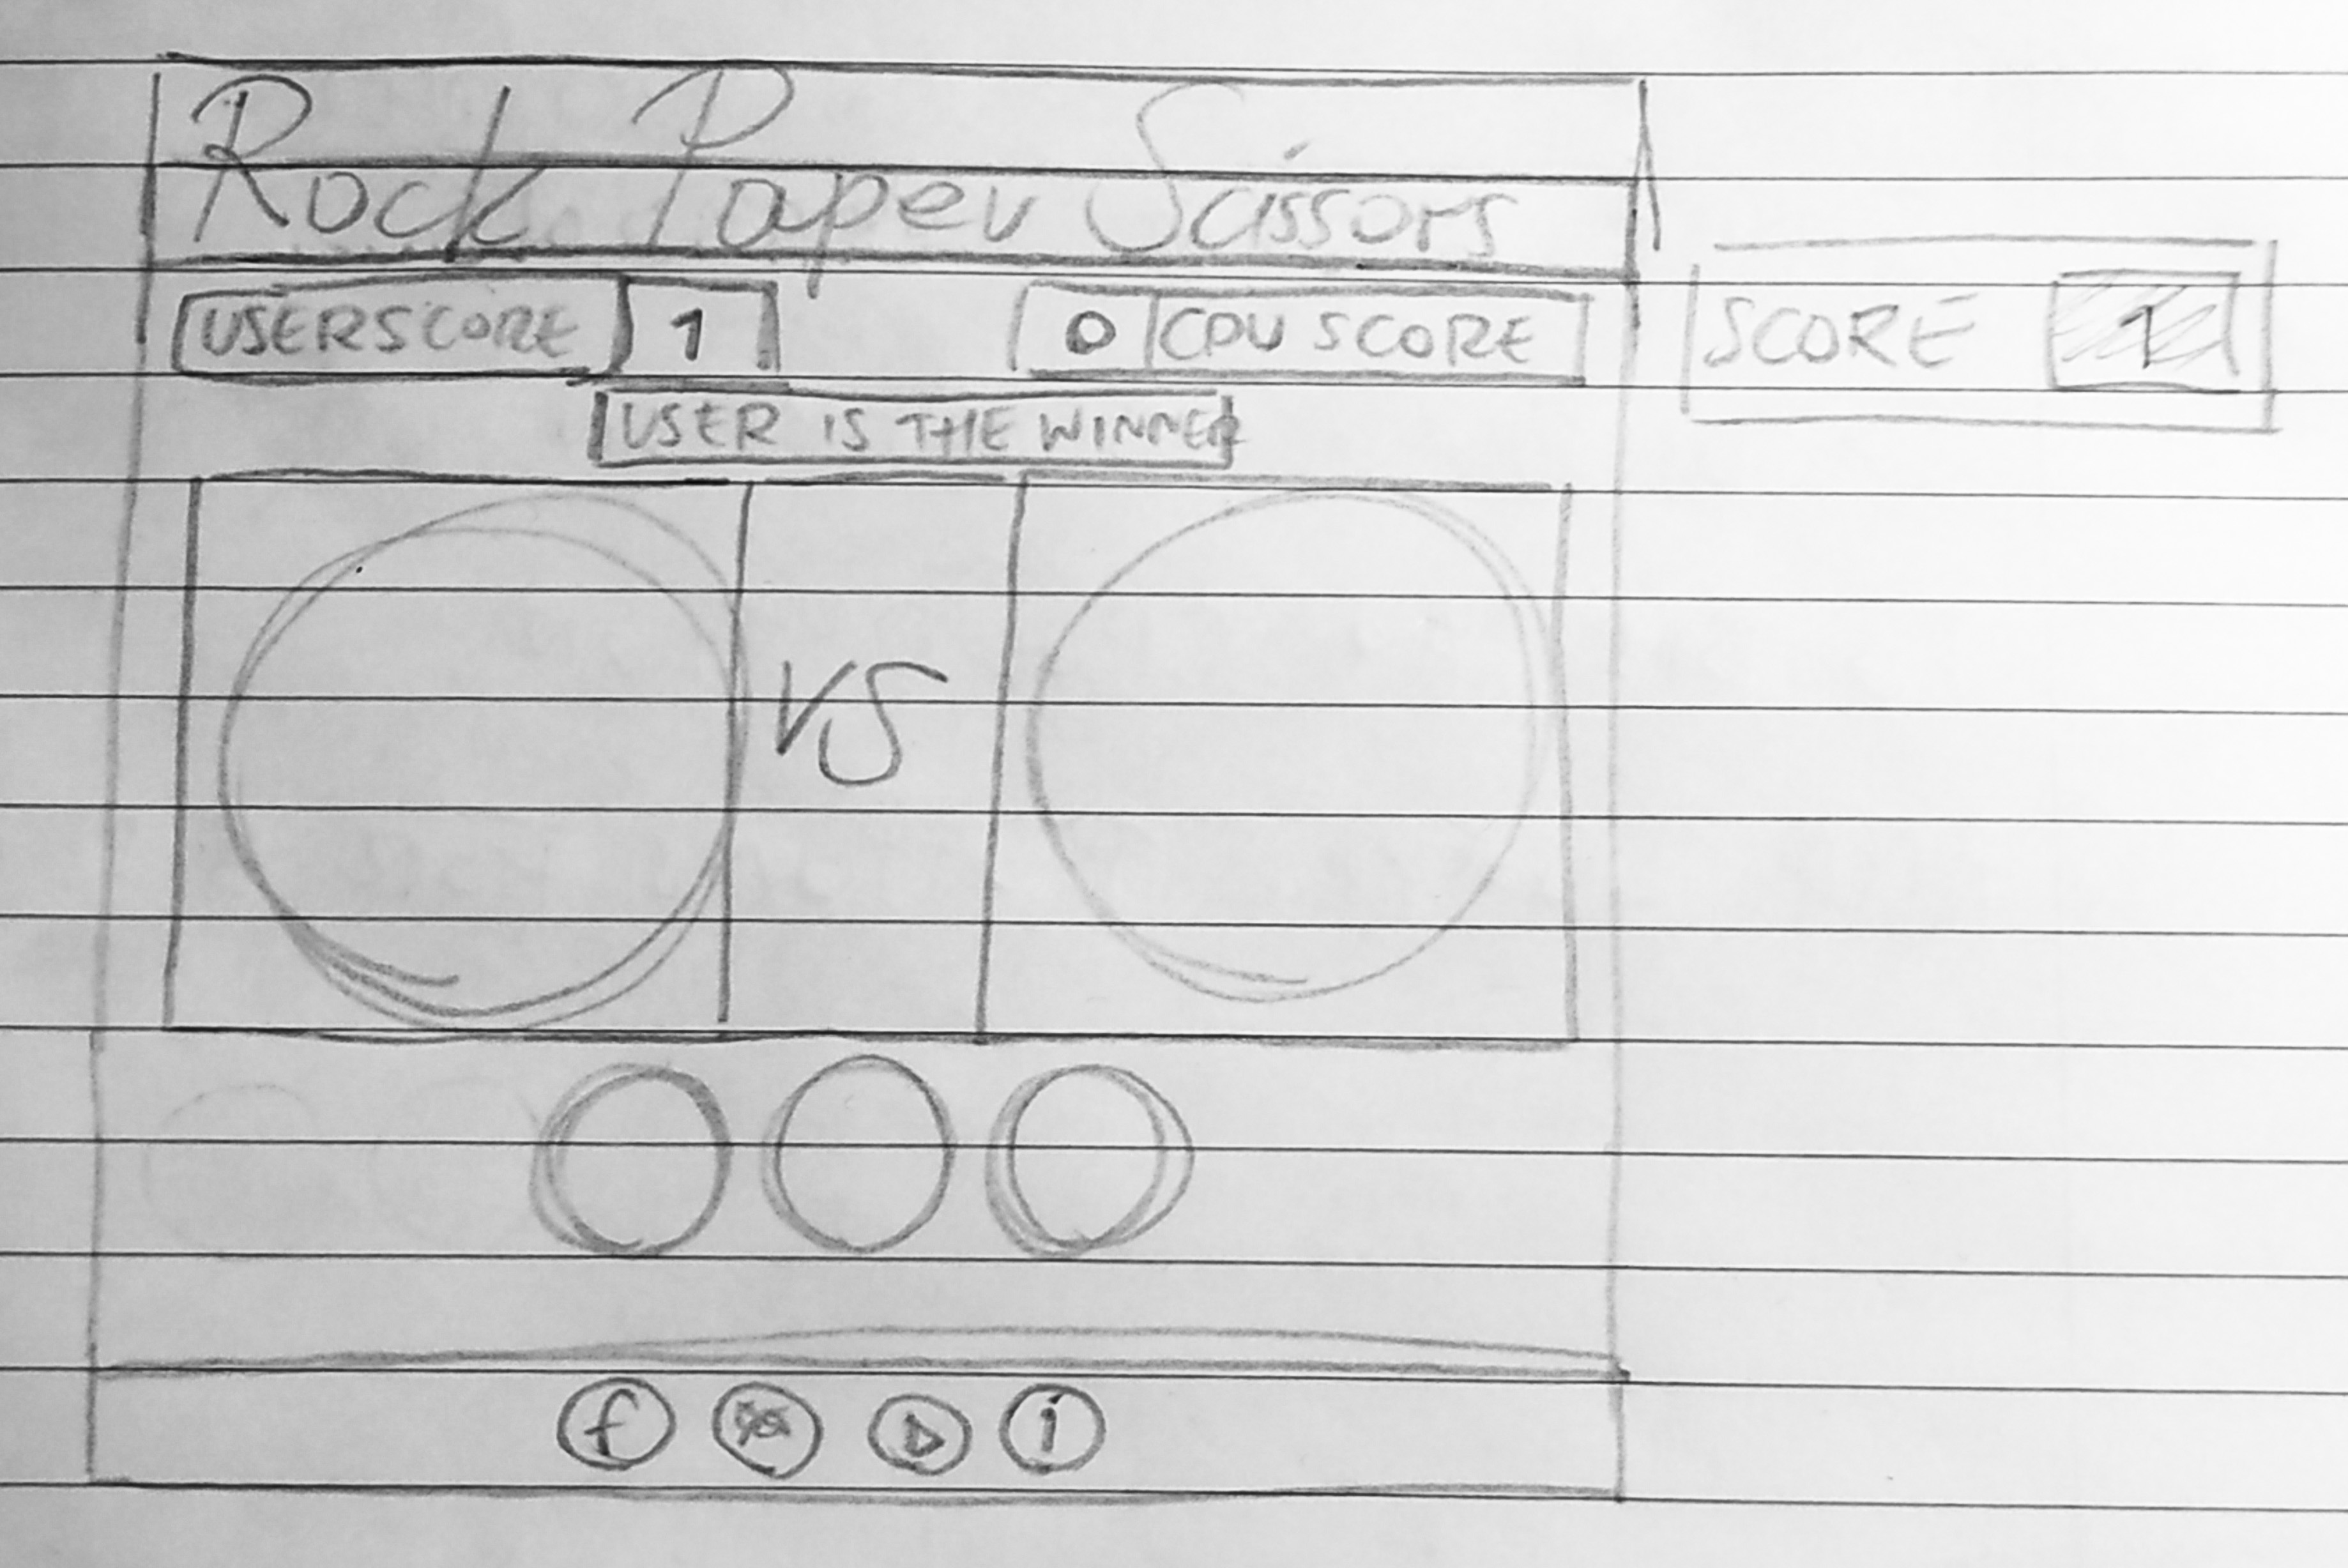 Rock Paper Scissors
USERSCORE 1 0 CPU SCORE
SCORE 1
USER IS THE WINNER
VS
f
i